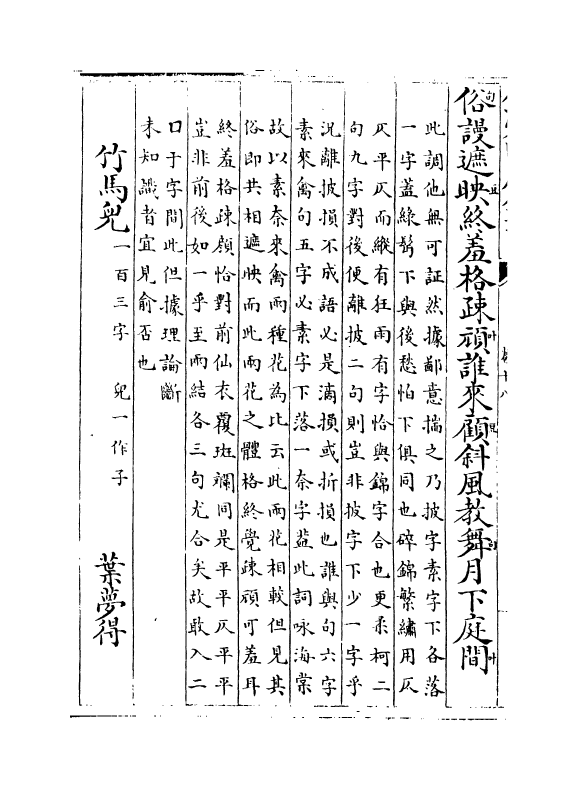 俗謾遮映終羞格疎頑誰來顧斜風教舞月下庭間
此調他無可証然據鄙意揣之乃披字素字下各落
一字蓋綠鬌下與後愁怕下俱同也碎錦繁繡用仄
仄平仄而縱有狂雨有字恰與錦字合也更柔柯二
句九字對後便離披二句則豈非披字下少一字乎
況離披損不成語必是滴損或折損也誰與句六字
素來禽句五字必素字下落一奈字葢此詞咏海棠
故以素奈來禽兩種花為比云此兩花相較但見其
俗即共相遮映而此兩花之體格終覺疎頑可羞耳
終羞格疎頑恰對前仙衣覆斑斕同是平平仄平平
豈非前後如一乎至兩結各三句尤合矣故敢入二
口于字間此但據理論斷
未知識者宜見俞否也
竹馬兒 一百三字 兒一作子 葉夢得